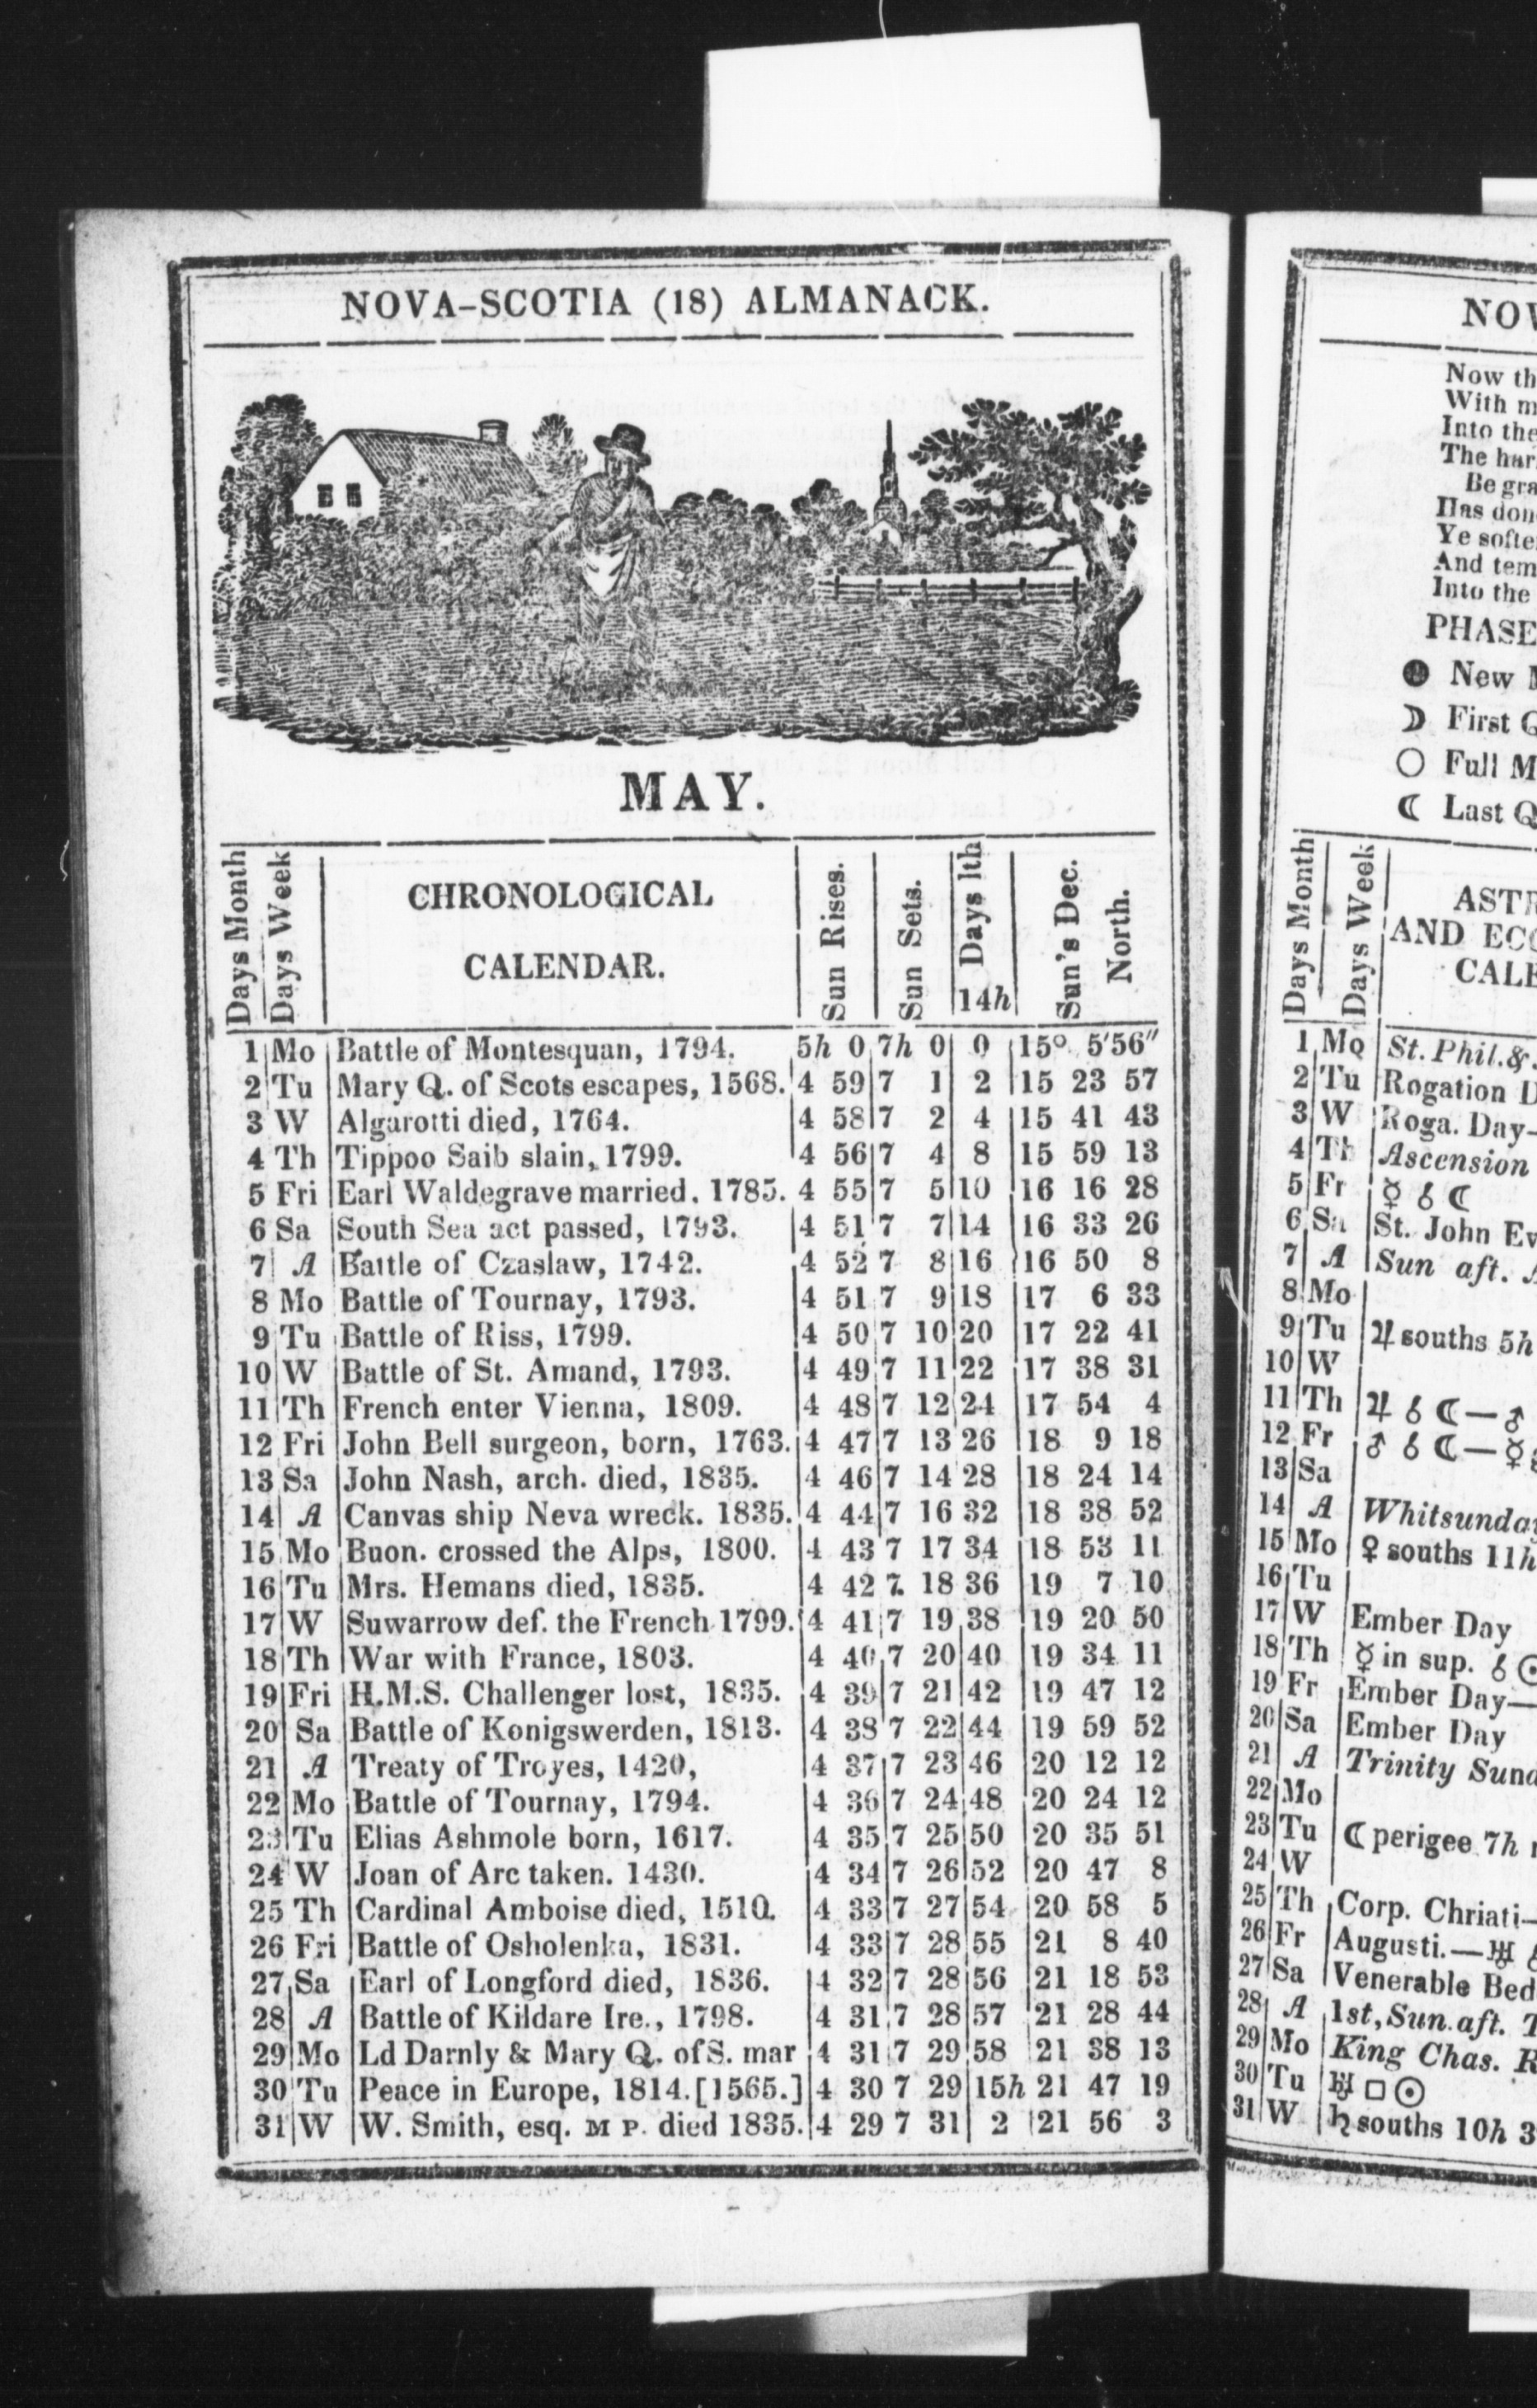 NOVA-SCOTIA (18) ALMANACK.
MAY.
Days Month
Days Week
CHRONOLOGICAL
CALENDAR.
Sun Rises.
Sun Sets.
Days lth
14h
Sun's Dec.
North.
1 Mo Battle of Montesquan, 1794. 5h 0 7h 0 0 15° 5'56"
2 Tu Mary Q. of Scots escapes, 1568. 4 59 7 1 2 15 23 57
3 W Algarotti died, 1764. 4 58 7 2 4 15 41 43
4 Th Tippoo Saib slain, 1799. 4 56 7 4 8 15 59 13
5 Fri Earl Waldegrave married, 1785. 4 55 7 5 10 16 16 28
6 Sa South Sea act passed, 1793. 4 51 7 7 14 16 33 26
7 A Battle of Czaslaw, 1742. 4 52 7 8 16 16 50 8
8 Mo Battle of Tournay, 1793. 4 51 7 9 18 17 6 33
9 Tu Battle of Riss, 1799. 4 50 7 10 20 17 22 41
10 W Battle of St. Amand, 1793. 4 49 7 11 22 17 38 31
11 Th French enter Vienna, 1809. 4 48 7 12 24 17 54 4
12 Fri John Bell surgeon, born, 1763. 4 47 7 13 26 18 9 18
13 Sa John Nash, arch. died, 1835. 4 46 7 14 28 18 24 14
14 A Canvas ship Neva wreck. 1835. 4 44 7 16 32 18 38 52
15 Mo Buon. crossed the Alps, 1800. 4 43 7 17 34 18 53 11
16 Tu Mrs. Hemans died, 1835. 4 42 7 18 36 19 7 10
17 W Suwarrow def. the French 1799. 4 41 7 19 38 19 20 50
18 Th War with France, 1803. 4 40 7 20 40 19 34 11
19 Fri H.M.S. Challenger lost, 1835. 4 39 7 21 42 19 47 12
20 Sa Battle of Konigswerden, 1813. 4 38 7 22 44 19 59 52
21 A Treaty of Troyes, 1420, 4 37 7 23 46 20 12 12
22 Mo Battle of Tournay, 1794. 4 36 7 24 48 20 24 12
23 Tu Elias Ashmole born, 1617. 4 35 7 25 50 20 35 51
24 W Joan of Arc taken. 1430. 4 34 7 26 52 20 47 8
25 Th Cardinal Amboise died, 1510. 4 33 7 27 54 20 58 5
26 Fri Battle of Osholenka, 1831. 4 33 7 28 55 21 8 40
27 Sa Earl of Longford died, 1836. 4 32 7 28 56 21 18 53
28 A Battle of Kildare Ire., 1798. 4 31 7 28 57 21 28 44
29 Mo Ld Darnly & Mary Q. of S. mar 4 31 7 29 58 21 38 13
30 Tu Peace in Europe, 1814. [1565.] 4 30 7 29 15h 21 47 19
31 W W. Smith, esq. M P. died 1835. 4 29 7 31 2 21 56 3
NOV
Now th
With m
Into the
The har
Be gra
Has don
Ye softe
And tem
Into the
PHASE
● New
☽ First Q
○ Full M
☾ Last Q
Days Month
Days Week
AST
AND ECC
CALE
1 Mo St. Phil. &.
2 Tu Rogation D
3 W Roga. Day-
4 Th Ascension
5 Fr ☿ ☌ ☾
6 Sa St. John Ev
7 A Sun aft. A
8 Mo
9 Tu ♃ souths 5h
10 W
11 Th ♃ ☌ ☾—♂
12 Fr ♂ ☌ ☾—☿
13 Sa
14 A Whitsunday
15 Mo ♀ souths 11h
16 Tu
17 W Ember Day
18 Th ☿ in sup. ☌ ☉
19 Fr Ember Day—
20 Sa Ember Day
21 A Trinity Sund
22 Mo
23 Tu ☾ perigee 7h
24 W
25 Th Corp. Chriati-
26 Fr Augusti.—♅
27 Sa Venerable Bed
28 A 1st, Sun. aft. T
29 Mo King Chas. R
30 Tu ♅ □ ☉
31 W ♄ souths 10h 3